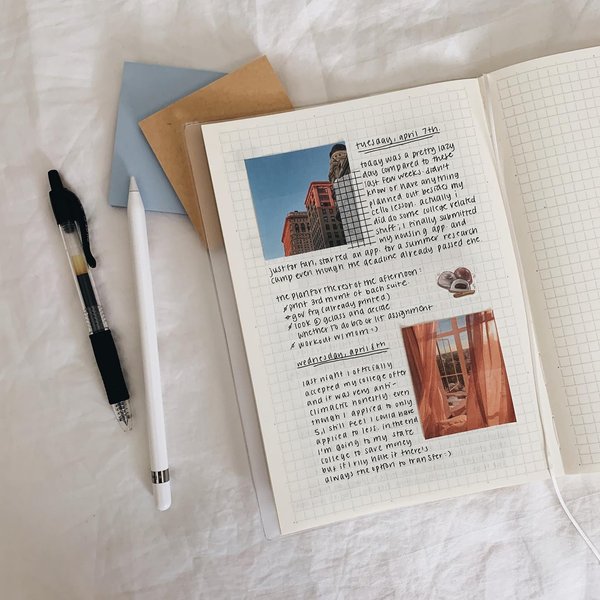 tuesday, april 7th
today was a pretty lazy
day compared to these
last few weeks. didn't
know or have anything
planned out besides my
cello lesson. actually i
did do some college related
stuff; i finally submitted
my housing app. and
just for fun, started an app. for a summer research
camp even though the deadline already passed
the plan for the rest of the afternoon:
print 3rd mvmt of bach suite
gov frq (already printed)
look @ gclass and decide
whether to do bro or lit assignment
workout w/ mom :)
wednesday, april 8th
last night i officially
accepted my college offer
and it was very anti-
climactic honestly. even
though i applied to only
5, i still feel i could have
applied to less. in the end
i'm going to my state
college to save money
but if i rlly hate it there's
always the option to transfer :)